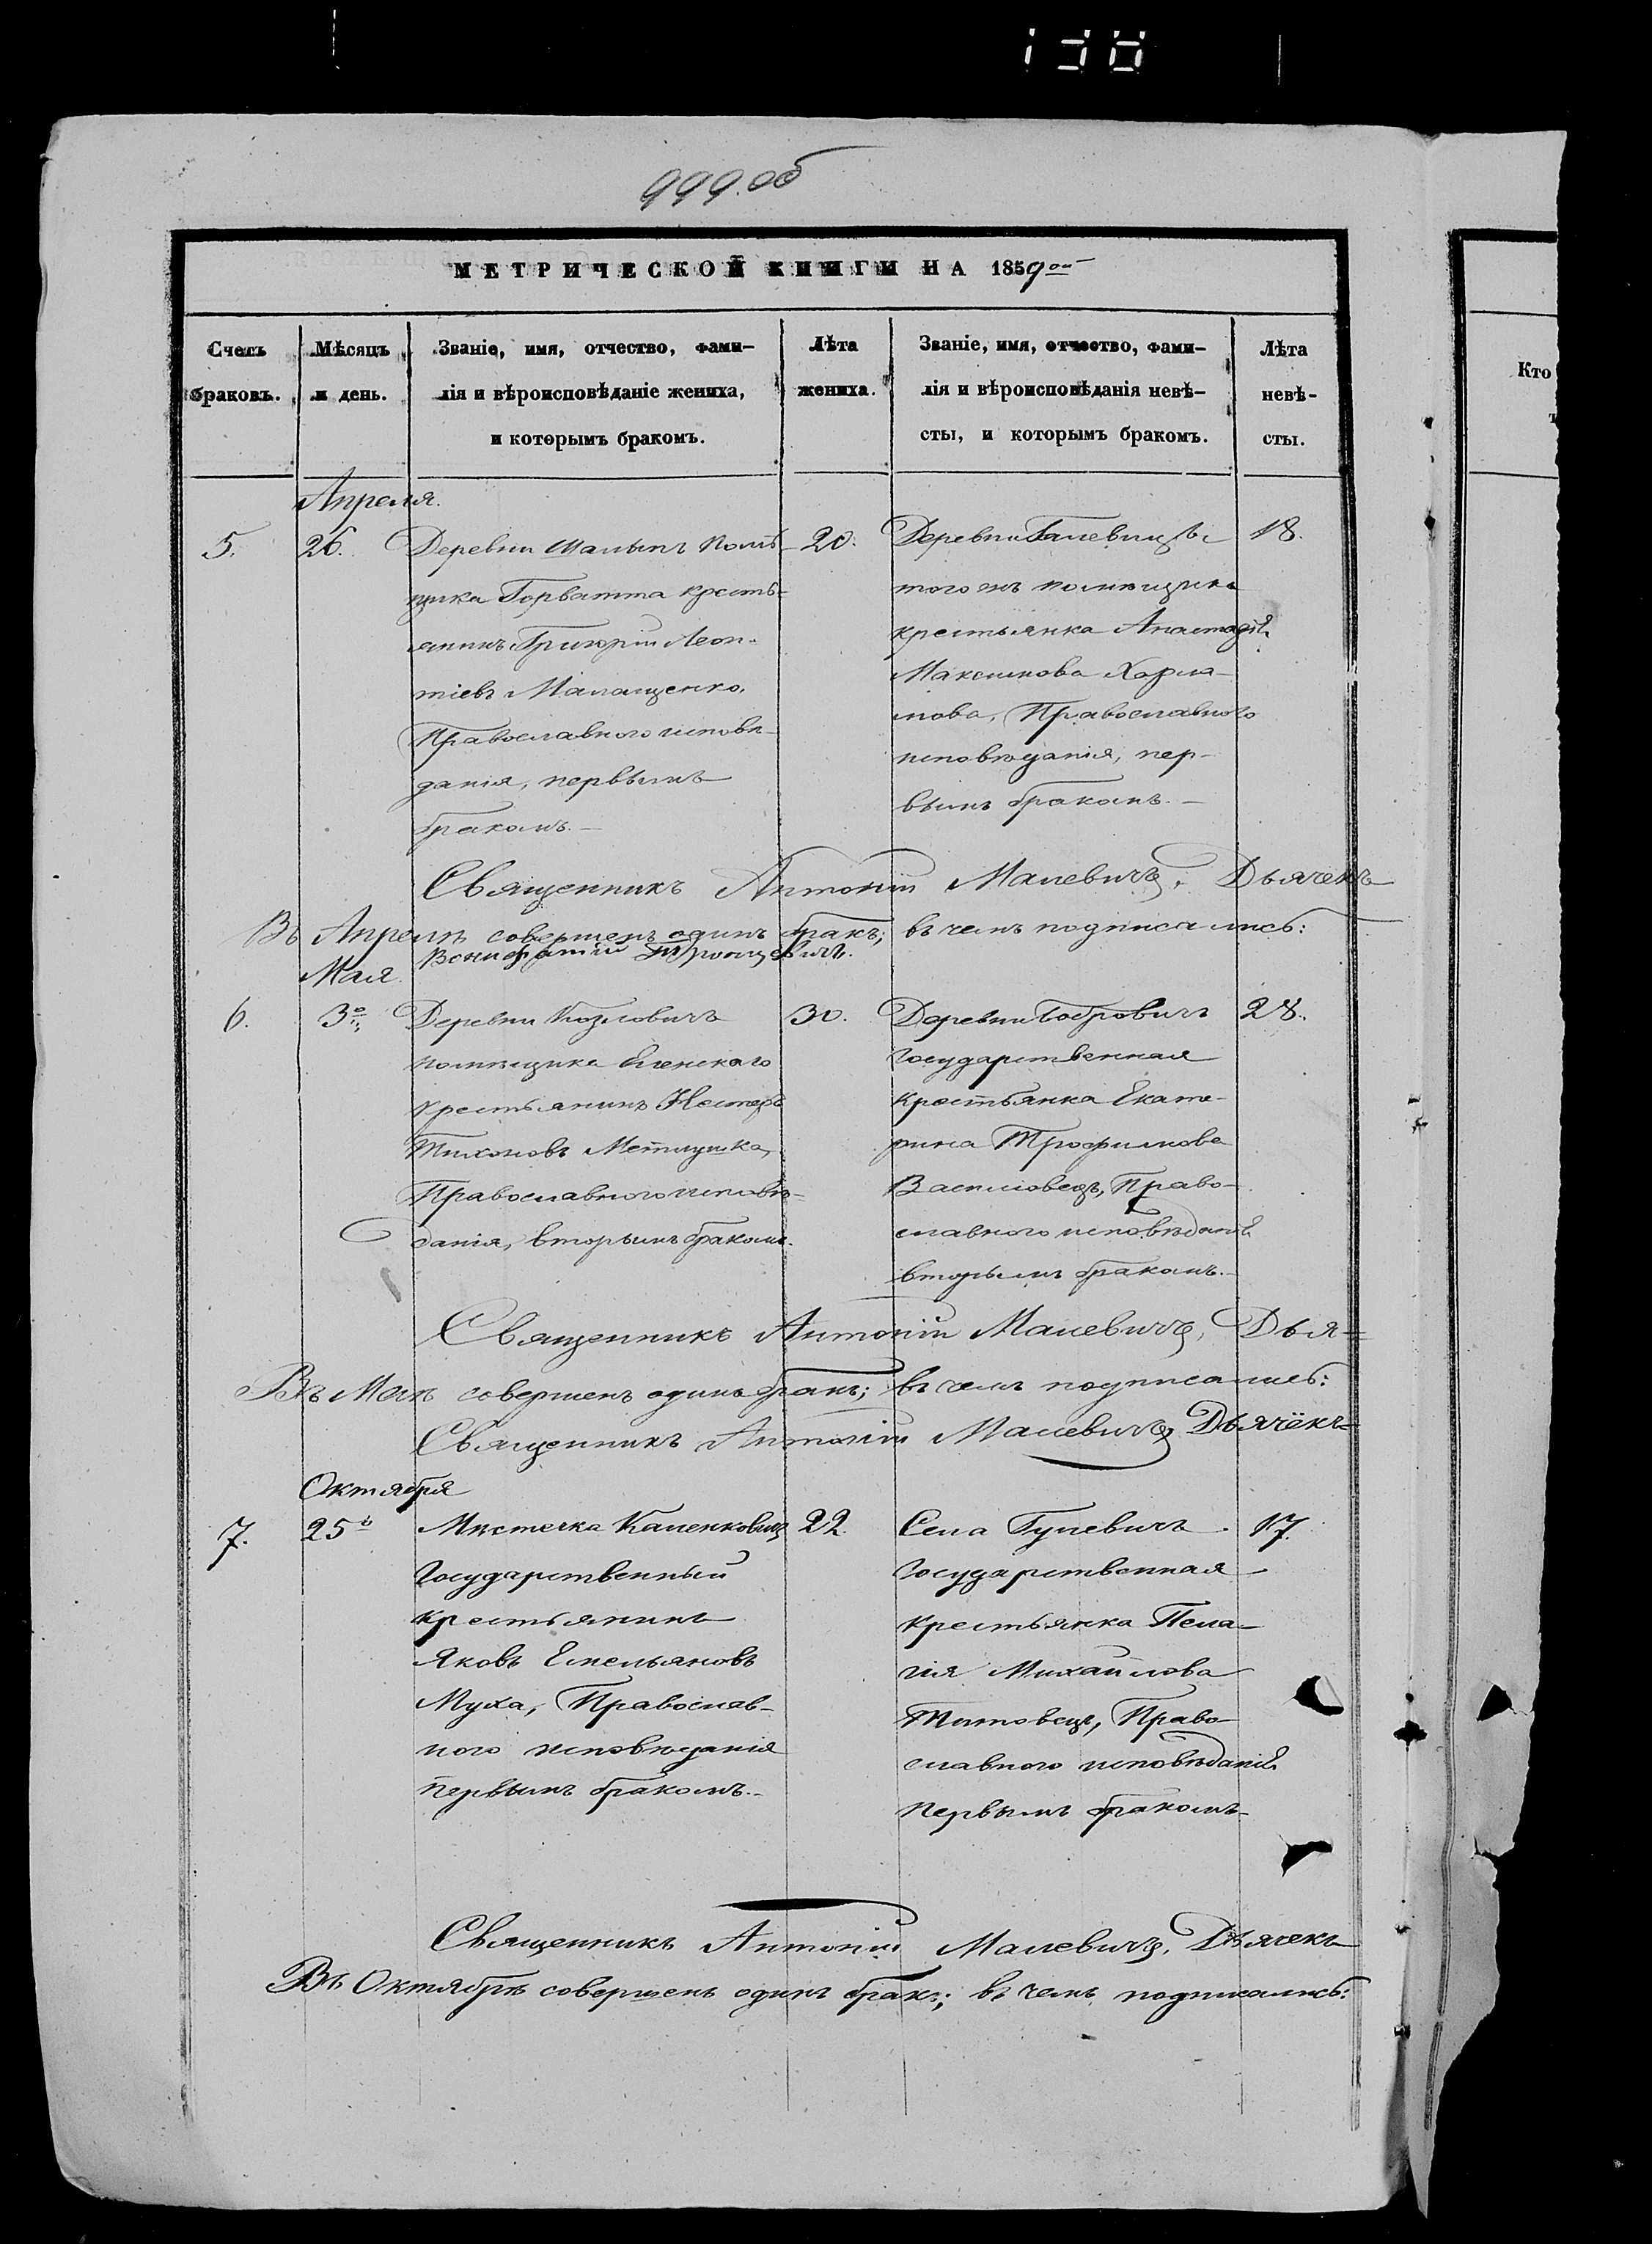 138
999.об
МЕТРИЧЕСКОЙ КНИГИ НА 1859ой
Счетъ браковъ.
Мѣсяцъ и день.
Званіе, имя, отчество, фами-
лія и вѣроисповѣданіе жениха,
и которымъ бракомъ.
Лѣта
жениха.
Званіе, имя, отчество, фами-
лія и вѣроисповѣданія невѣ-
сты, и которымъ бракомъ.
Лѣта
невѣ-
сты.
Кто
Апреля.
5.
26.
Деревни помѣ-
щика Горватта кресть-
янинъ Григорій Леон-
тіевъ Малащенко,
Православного исповѣ-
данія, первымъ
бракомъ.-
20.
Деревни
того жъ помѣщика
крестьянка Анастасія
Максимова Харла-
мова, Православного
исповѣданія, пер-
вымъ бракомъ.-
18.
Священникъ Антоній Малевичъ, Дьячекъ
Въ Апрелѣ совершенъ одинъ бракъ; въ чемъ подписались:
Вонифатій
Мая.
6.
3го
Деревни Козловичъ
помѣщика Еленскаго
крестьянинъ Нестеръ
Тихоновъ Метлушка,
Православного исповѣ-
данія, вторымъ бракомъ.
30.
Деревни Бобровичъ
Государственная
крестьянка Екате-
рина Трофимова
Василовецъ, Право-
славного исповѣданія
вторымъ бракомъ.-
28.
Священникъ Антоній Малевичъ, Дья=
Въ Маѣ совершенъ одинъ бракъ; въ чемъ подписались:
Священникъ Антоній Малевичъ Дьячёкъ=
Октября
7.
25ь
Мѣстечка Каленковичъ
Государственный
крестьянинъ
Яковъ Емельяновъ
Муха, Православ-
ного исповѣданія
первымъ бракомъ.-
22.
Села Гулевичъ
Государственная
крестьянка Пела-
гія Михайлова
Титовецъ, Право-
славного исповѣданія
первымъ бракомъ-
17.
Священникъ Антоній Малевичъ, Дьячекъ
Въ Октябрѣ совершенъ одинъ бракъ; въ чемъ подписались: